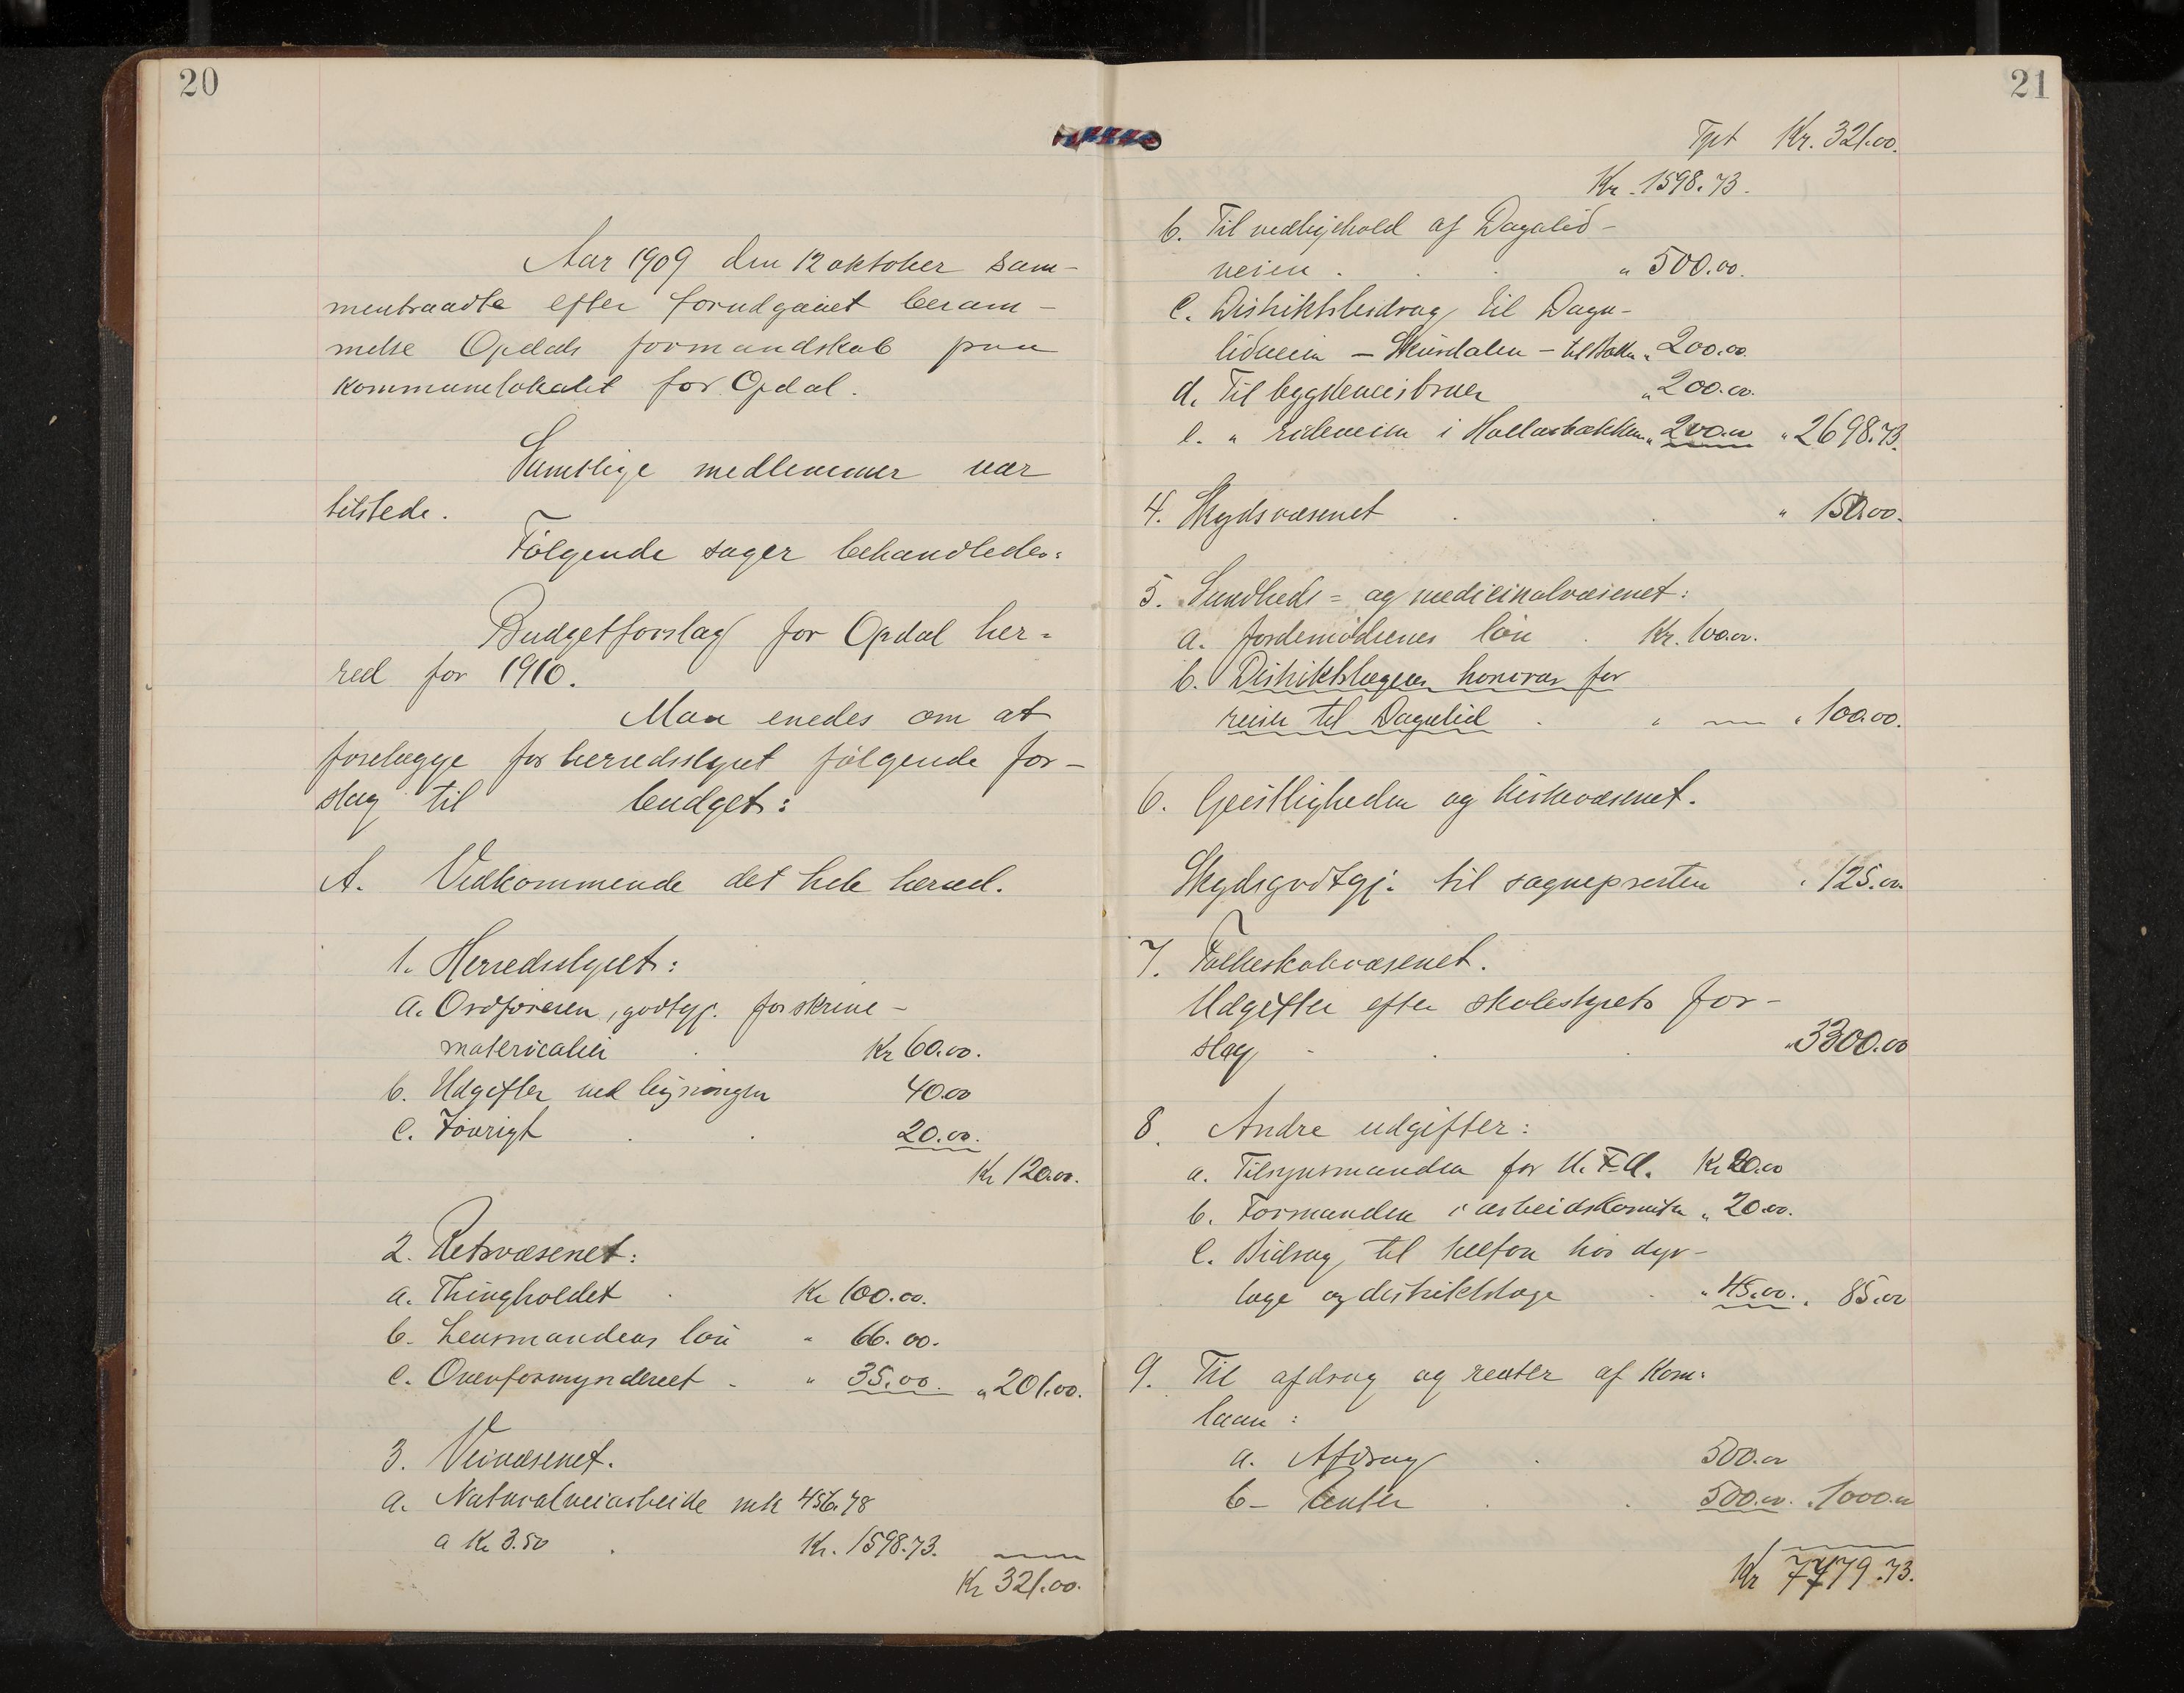 20
Aar 1909 den 12 oktober sam-
mentraadte efter forudgaaet beram-
melse Opdals formandskab paa
kommunelokalet for Opdal.
Samtlige medlemmer var
tilstede.
Følgende sager behandledes:
Budgetforslag for Opdal her-
red for 1910.
Man enedes om at
forelægge for herredsstyret følgende for-
slag til budget:
A. Vedkommende det hele herred.
1. Herredsstyret:
a. Ordføreren, godtgj. for skrive-
materialier . Kr 60.00.
b. Udgifter ved ligningen 40.00
c. Iøvrigt . . 20.00.
Kr 120.00.
2. Retsvæsenet:
a. Thingholdet . Kr 100.00.
b. Lensmandens løn " 66.00.
c. Overformynderiet - " 35.00. " 201.00.
3. Veivæsenet.
a. Naturalveiarbeide mk 456.78
a Kr 3.50 . Kr. 1598.73.
Kr 321.00.
21
Tpt Kr. 321.00.
Kr. 1598.73.
b. Til vedligehold af Dagalid-
veien . . . " 500.00.
c. Distriktsbidrag til Daga-
lidveien — Skurdalen - til " 200.00.
d. Til bygdeveisbruer " 200.00.
e. " rideveien i " 200.00 " 2698.73.
4. Skydsvæsenet . . " 150.00.
5. Sundheds= og medicinalvæsenet:
a. Jordemødrenes løn . Kr. 100.00.
b. Distriktslægens honorar for
reise til Dagalid . " — " 100.00.
6. Geistligheden og kirkevæsenet.
Skydsgodtgj. til sognepresten " 125.00.
7. Folkeskolevæsenet.
Udgifter efter skolestyrets for-
slag . . . " 3300.00
8. Andre udgifter:
a. Tilsynsmanden for U.F.A. Kr 20.00
b. Formanden i arbeidskomiten " 20.00.
c. Bidrag til telefon hos dyr-
læge og distriktslæge . " 45.00. " 85.00
9. Til afdrag og renter af kom:
laan:
a. Afdrag . 500.00
b- Renter . . 500.00. " 1000.00
Kr 7779.73.